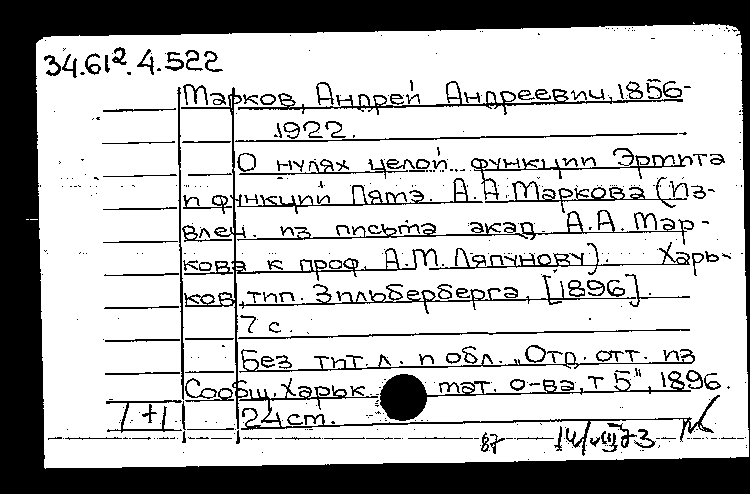 34.61².4.522
Марков, Андрей Андреевич, 1856-
1922.
О нулях целой функции Эрмита
и функций Лямэ. А.А. Маркова (Из-
влеч. из письма акад. А.А. Мар-
кова к проф. А.М. Ляпунову). Харь-
ков, тип. Зильберберга, [1896].
7 с.
Без тит. л. и обл. „Отд. отт. из
Сообщ. Харьк. мат. о-ва, т 5", 1896.
1+1 24 см.
87 14/VIII 73